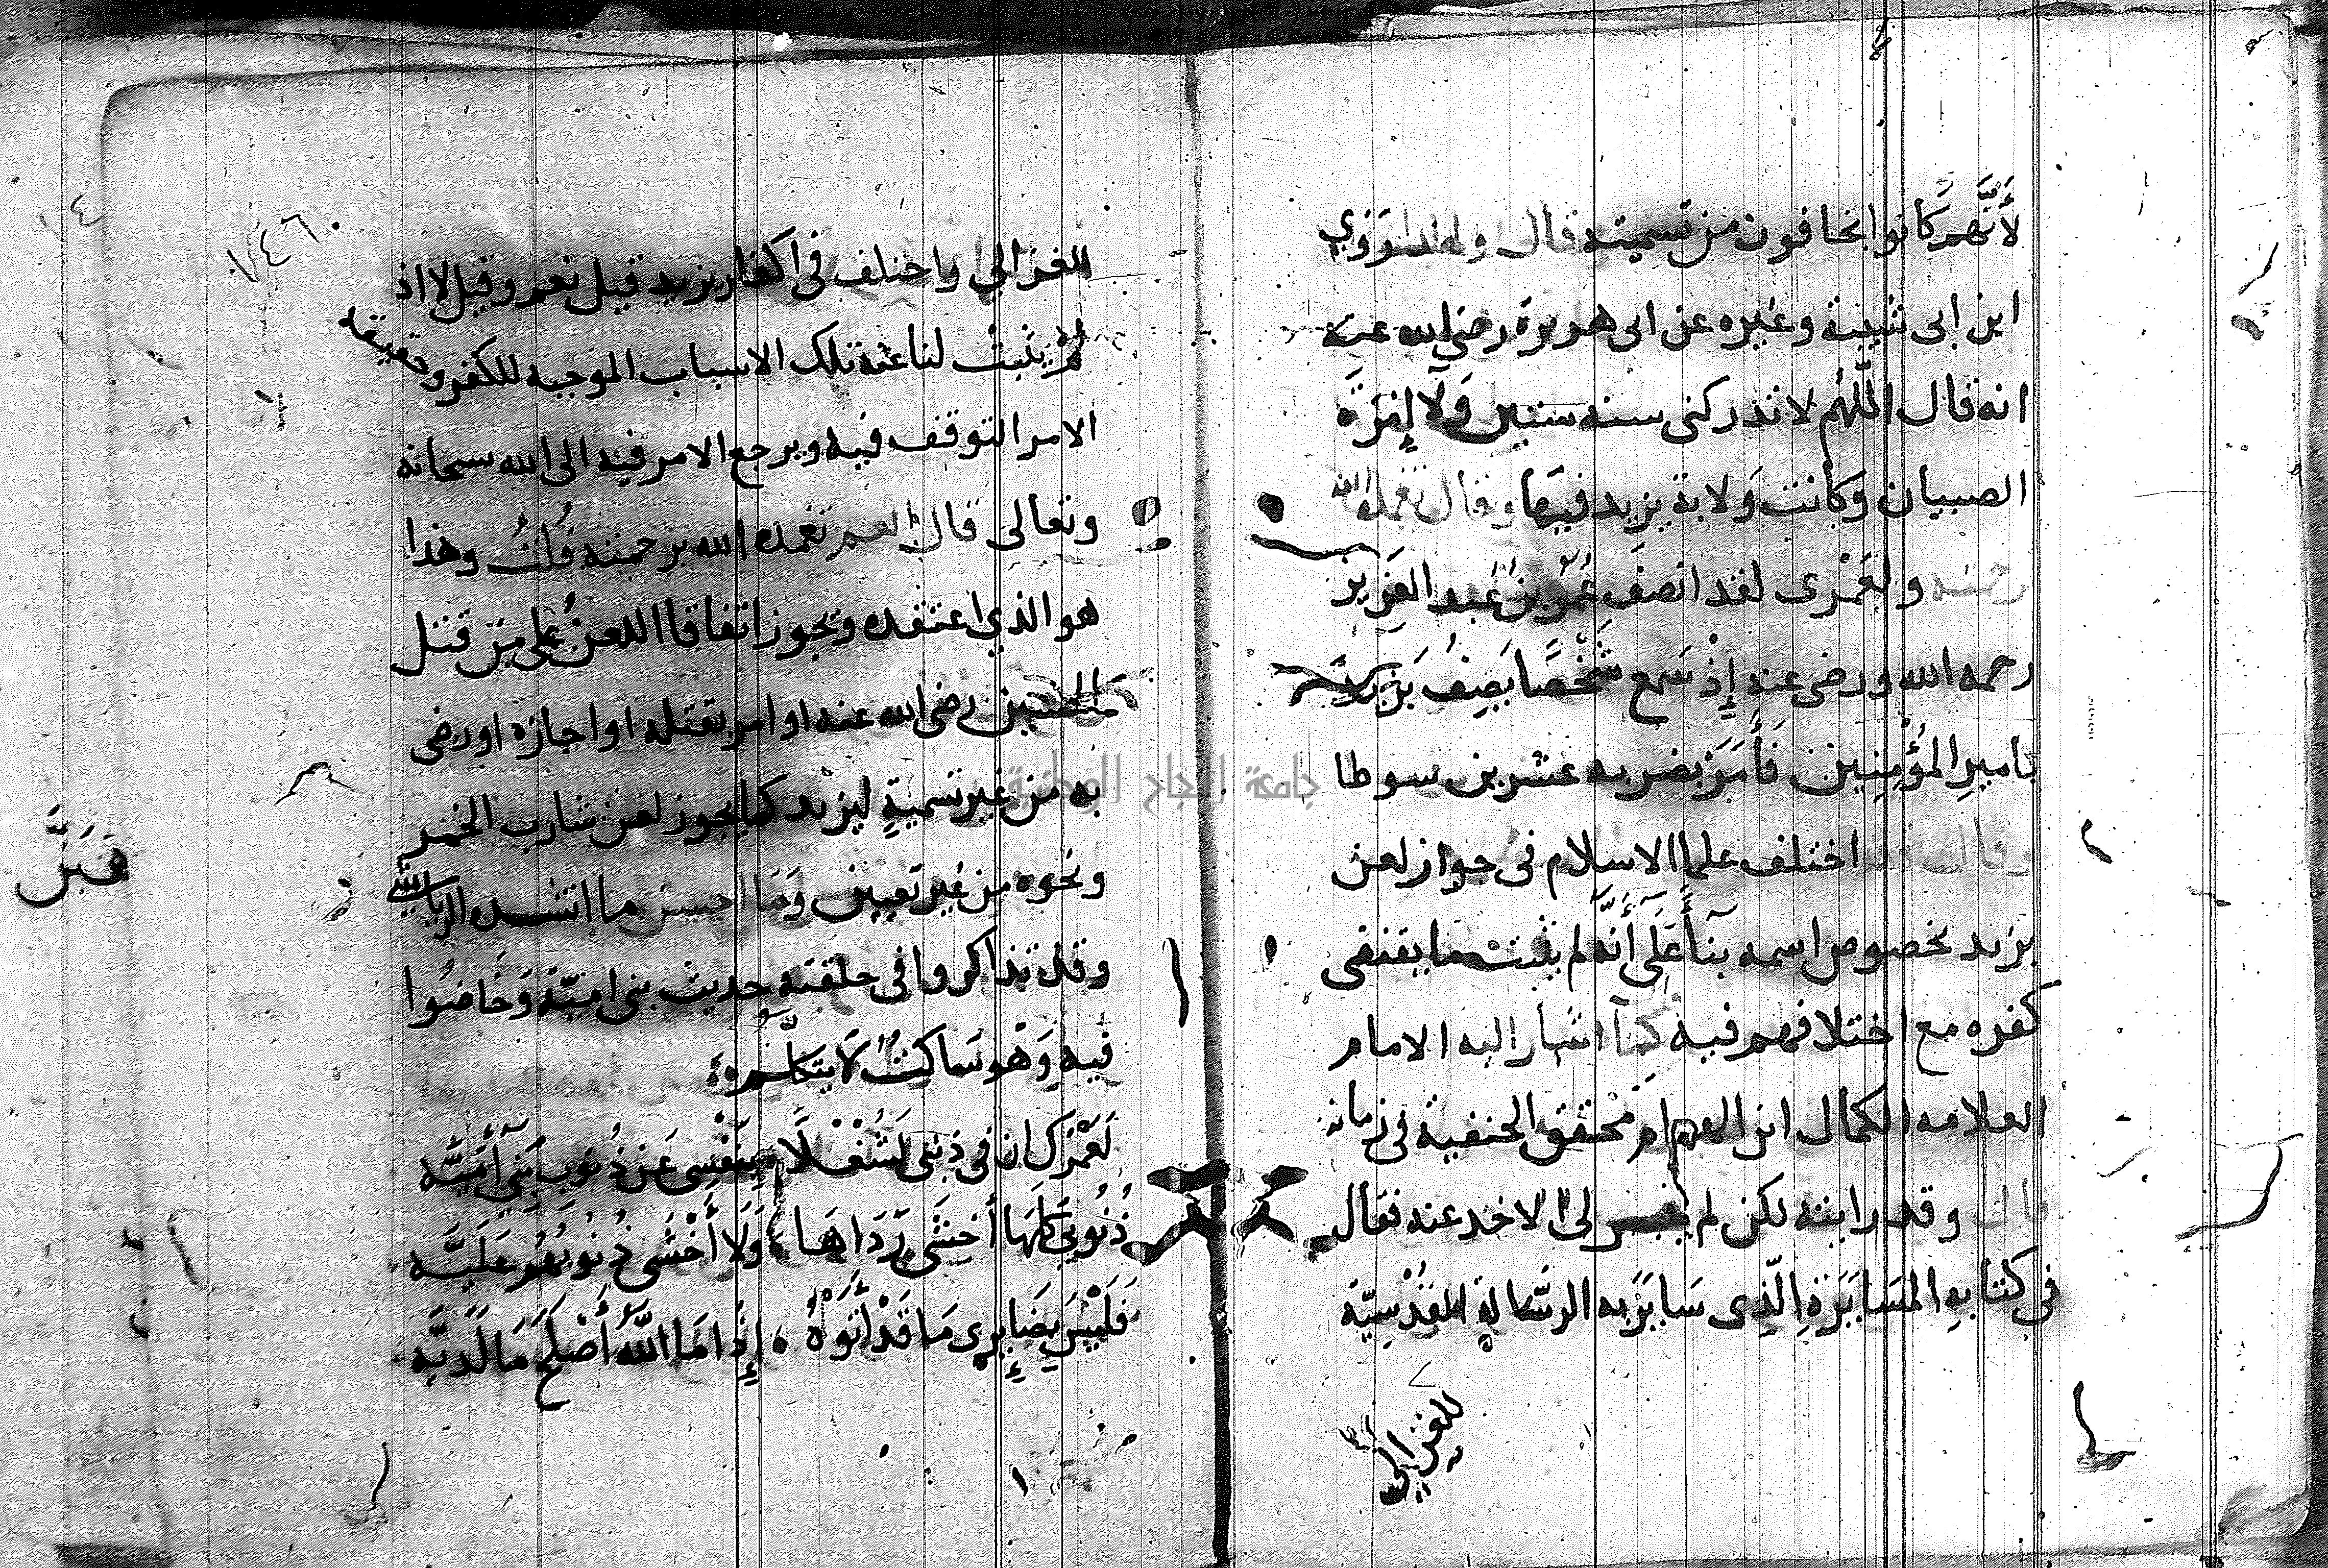 لأنَّهم كانوا يخافون من تسميته قال ولهذا روي
ابن ابى شيبة وغيره عن ابى هريرة رضي الله عنه
انه قال اللّهُم لا تدركنى سنه ستين وَلا إمْرَة
الصبيان وكانت وَلاية يزيد فيها وقال تغمده الله
برحمته ولعَمْرى لقد انصفَ عُمَر بنُ عَبد العَزيز
رحمه الله ورضى عنه إذْ سَمع شَخْصًا يَصِفُ يَزيد
بامير المُؤْمِنِين فَأَمَرَ بضربه عشرين سوطا
وقال قد اختلف علما الاسلام فى جواز لعن
يزيد بخصوص اسمه بنآء عَلَى أَنَّه لم يثبت ما يقتضى
كفره مع اختلافهم فيه كمآ اشار اليه الامام
العلامه الكمال ابن الهمام محقق الحنفية فى زمانه
قال وقد رايته لكن لم يتيسر لى الاخد عنه فقال
في كتابه المسَايَرَةِ الّذِى سَايَرَ به الرسَّالة القُدْسِيّة
للغزالي
للغزالي واختلف فى اكفار يزيد قيل نعم وقيل لا اذ
لمْ يثبتْ لنا عنه تلك الاسباب الموجبه للكفر وحقيقة
الامر التوقف فيه ويرجع الامر فيه الى الله سبحانه
وتعالى قال العم تغمده الله برحمته قُلتُ وهذا
هو الذي اعتقده ويجوز اتفاقا اللعنُ على من قتل
الحسين رضى الله عنه او امر بقتله او اجازه او رضى
به من غير تسميةٍ ليزيد كما يجوز لعن شارب الخمر
ونحوه من غير تعيين وَمَا احسن ما انشده الرياشي
وقد تذاكروا فى حلقته حديث بنى اميّة وَخَاضُوا
فيه وَهْو سَاكتٌ لا يتكلّم
لَعَمْرك ان فى ذنبى لَشُغْلًا بنَفْسِى عَن ذُنوب بَنِي أُمَيَّه
ذُنُوبي كلهَا أخشَى رَدَاهَا وَلَا أَخْشَى ذُنُوبَهُم عَلَيَّه
فَلَيْسَ بِضَايِرِى مَا قَدْ أَتَوْهُ إِذَا مَا اللّهُ أَصْلَحَ مَا لَدَيَّه
جامعة النجاح الوطنية